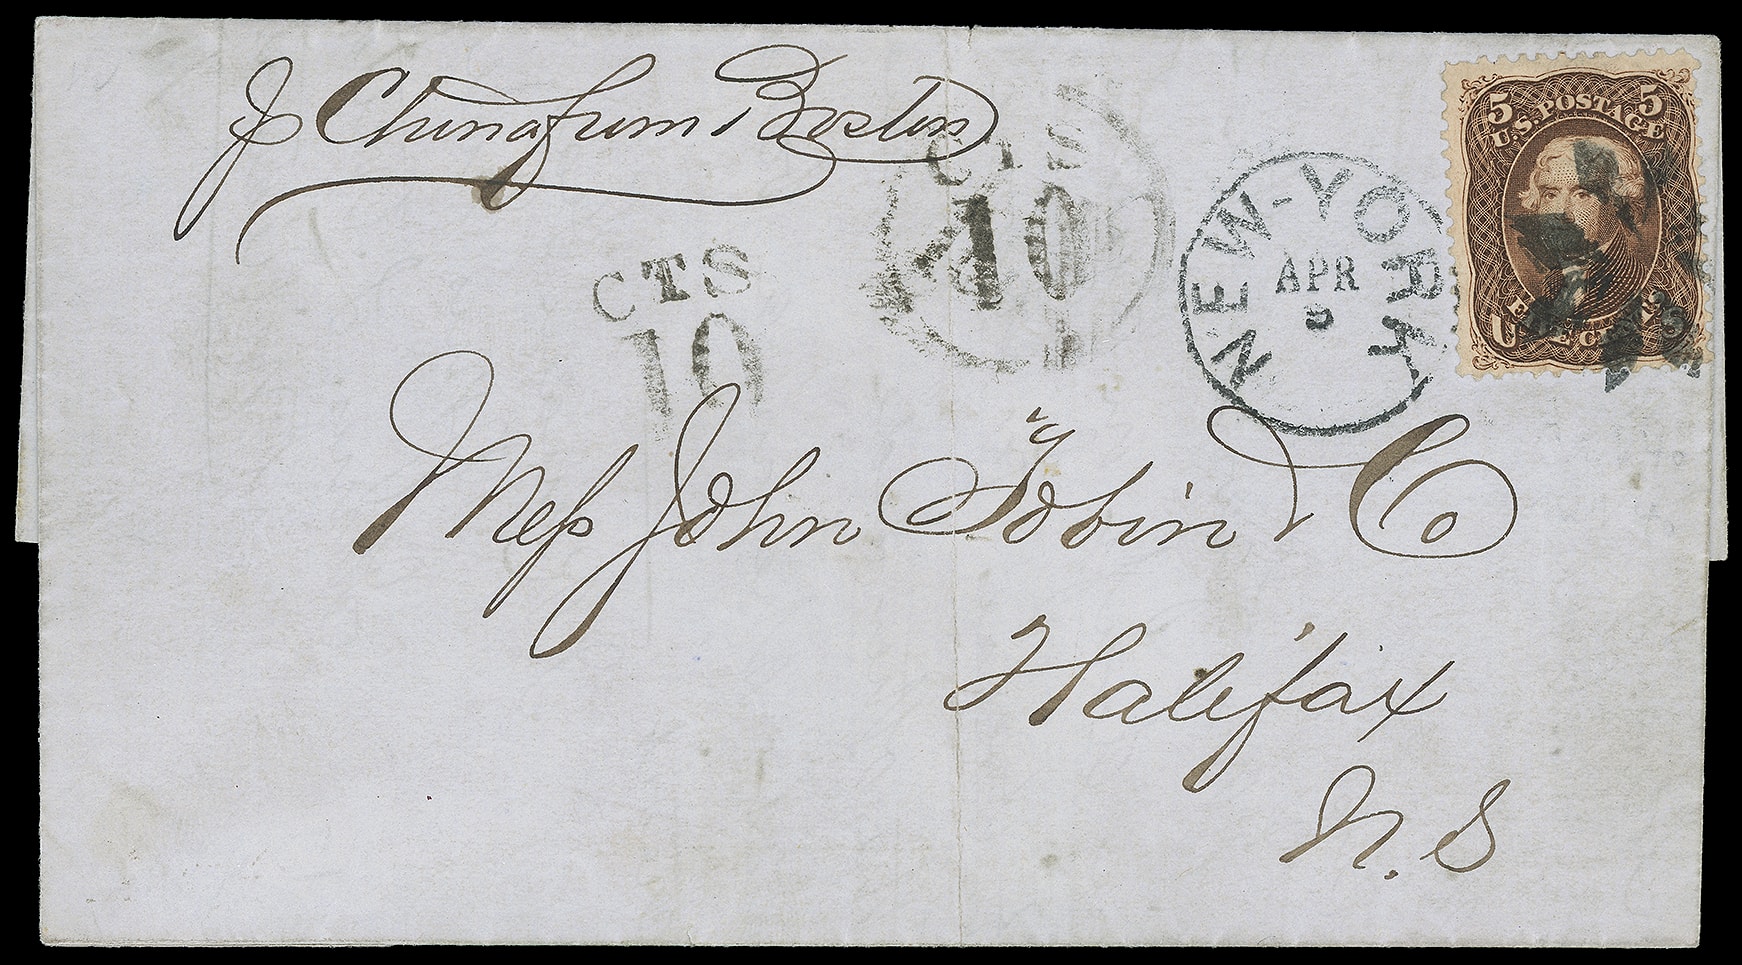 p China from Boston
CTS
10
CTS
10
NEW-YORK
APR
5
5 5
U.S. POSTAGE
U
Mess John Tobin & Co
Halifax
N.S